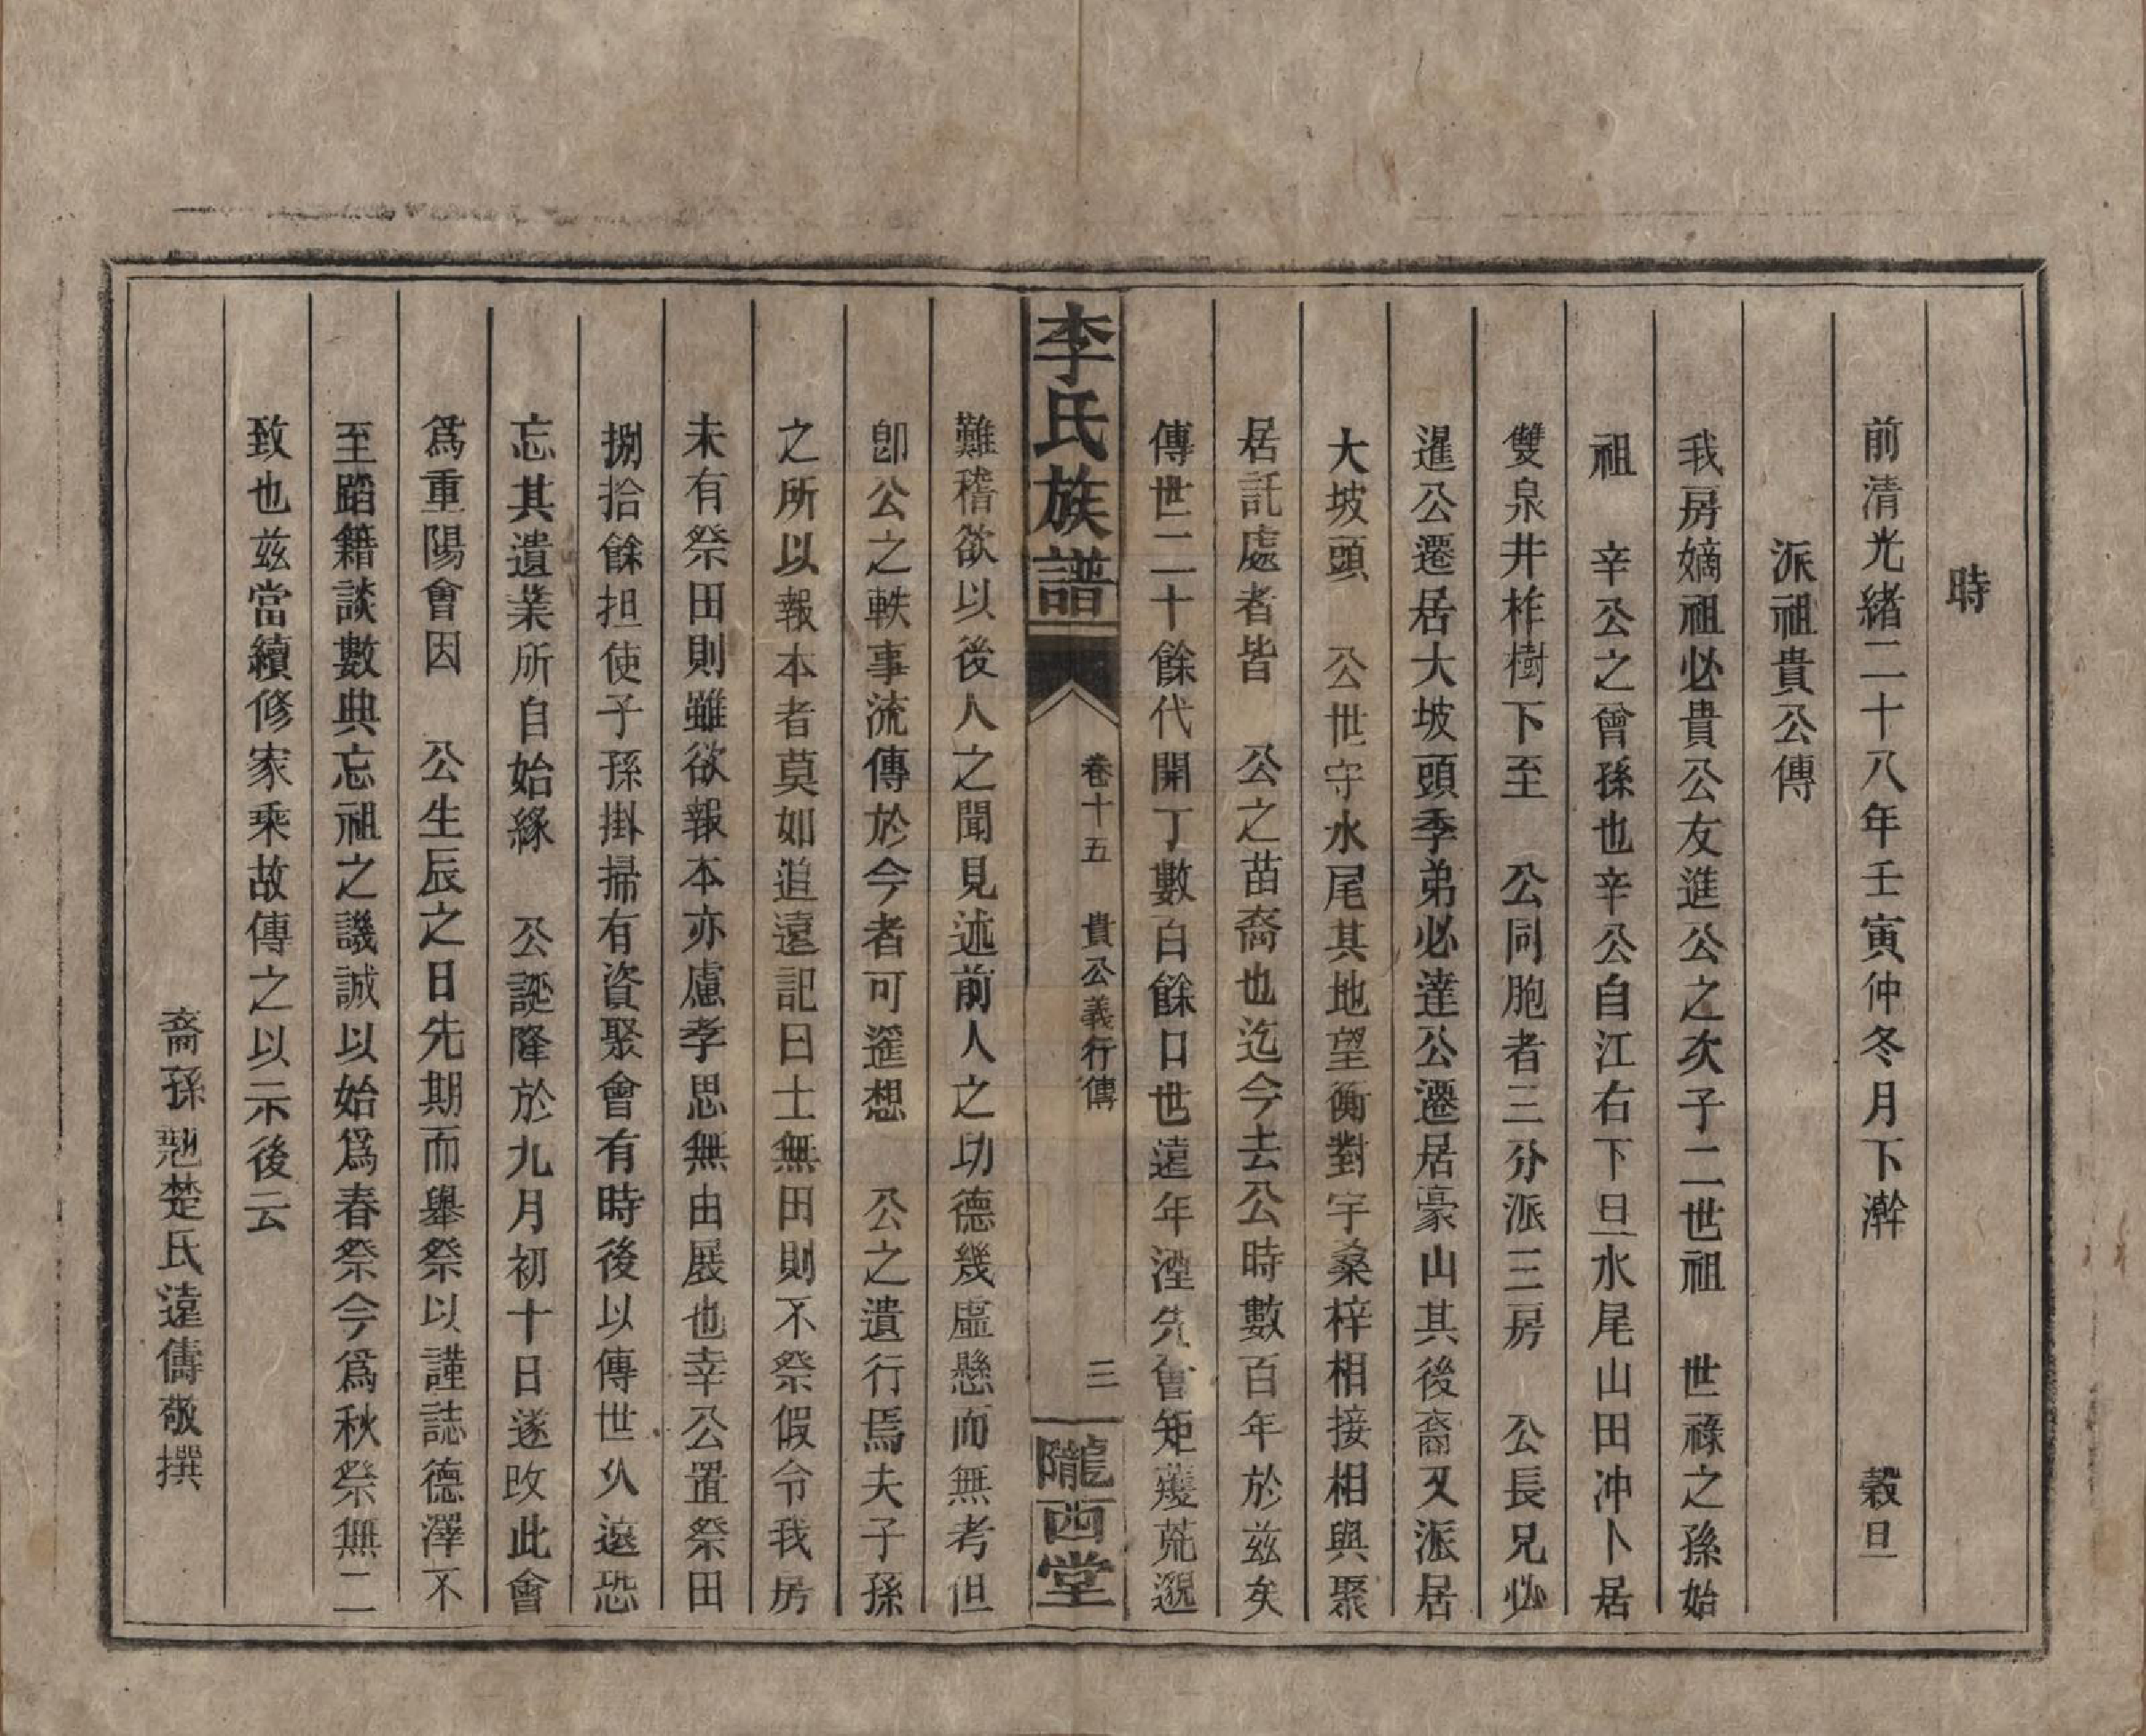 時
前清光緒二十八年壬寅仲冬月下澣 穀旦
派祖貴公傳
我房嫡祖必貴公友進公之次子二世祖 世祿之孫始
祖 辛公之曾孫也辛公自江右下旦水尾山田冲卜居
雙泉井柞樹下至 公同胞者三分派三房 公長兄必
暹公遷居大坡頭季弟必達公遷居豪山其後裔又派居
大坡頭 公世守水尾其地望衡對宇桑梓相接相與聚
居託處者皆 公之苗裔也迄今去公時數百年於兹矣
傳世二十餘代開丁數百餘口世遠年湮先會矩矱荒邈
李氏族譜 卷十五 貴公義行傳 三 隴西堂
難稽欲以後人之聞見述前人之功德幾虛懸而無考但
卽公之軼事流傳於今者可遥想 公之遺行焉夫子孫
之所以報本者莫如追遠記曰士無田則不祭假令我房
未有祭田則雖欲報本亦慮孝思無由展也幸公置祭田
捌拾餘担使子孫掛掃有資聚會有時後以傳世久遠恐
忘其遺業所自始緣 公誕降於九月初十日遂改此會
爲重陽會因 公生辰之日先期而舉祭以謹誌德澤不
至蹈籍談數典忘祖之譏誠以始爲春祭今爲秋祭無二
致也兹當續修家乘故傳之以示後云
裔孫 楚氏遠儔敬撰